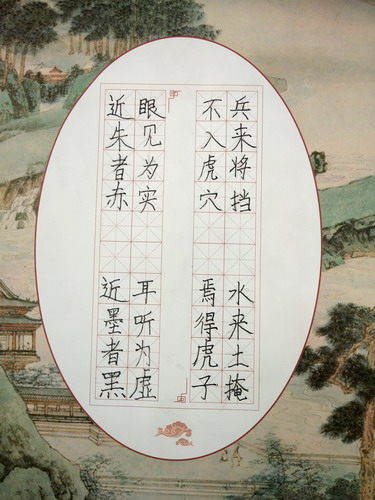 兵来将挡 水来土掩
不入虎穴 焉得虎子
眼见为实 耳听为虚
近朱者赤 近墨者黑